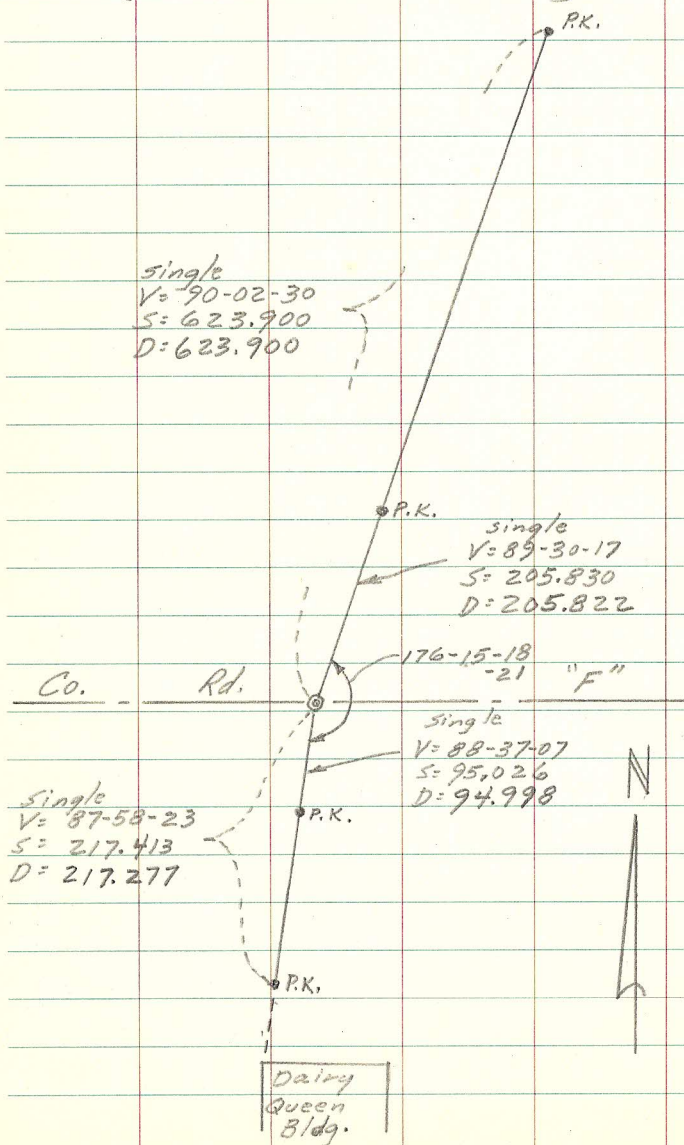 P.K.
single
V= 90-02-30
S= 623.900
D= 623.900
P.K.
single
V= 89-30-17
S= 205.830
D= 205.822
176-15-18
-21
Co. Rd. "F"
single
V= 88-37-07
S= 95,026
D= 94.998
N
single
V= 87-58-23
S= 217.413
D= 217.277
P.K.
P.K.
Dairy
Queen
Bldg.